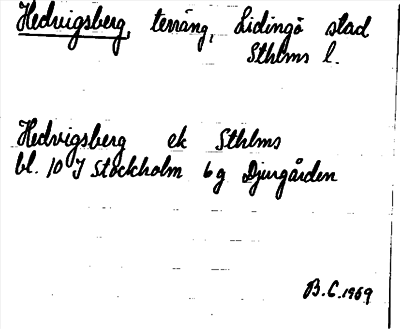 Hedvigsberg, terräng, Lidingö stad
Sthlms l.
Hedvigsberg ek Sthlms
bl. 10 I Stockholm 6g Djurgården
B.C. 1969